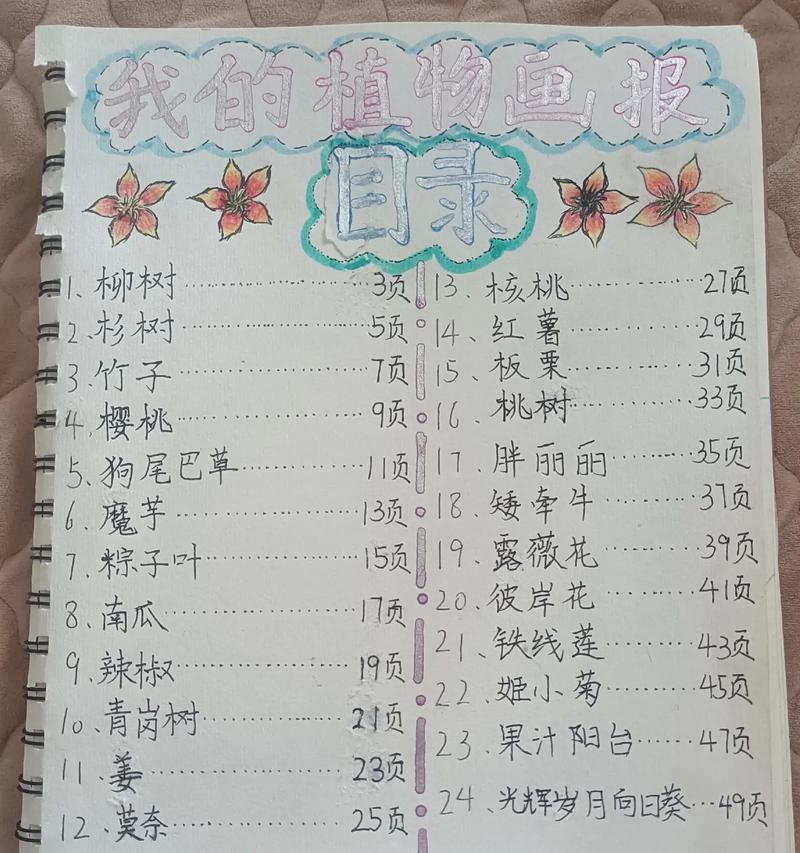 我的植物画报
目录
1、柳树…………………3页
2、杉树…………………5页
3、竹子…………………7页
4、樱桃…………………9页
5、狗尾巴草……………11页
6、魔芋…………………13页
7、粽子叶………………15页
8、南瓜…………………17页
9、辣椒…………………19页
10、青岗树……………21页
11、姜…………………23页
12、莫奈………………25页
13、核桃………………27页
14、红薯………………29页
15、板栗………………31页
16、桃树………………33页
17、胖丽丽……………35页
18、矮牵牛……………37页
19、露薇花……………39页
20、彼岸花……………41页
21、铁线莲……………43页
22、姬小菊……………45页
23、果汁阳台……47页
24、光辉岁月向日葵…49页